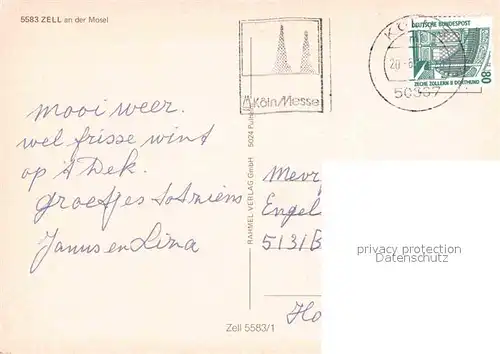 5583 ZELL an der Mosel
Köln/Messe
DEUTSCHE BUNDESPOST
80
ZECHE ZOLLERN II DORTMUND
50667
mooi weer.
wel frisse wint
op 't Dek.
groetjes
Janus en Lina
RAHMEL-VERLAG GmbH 5024
Mevr
Engel
5131 B
Ho
privacy protection
Datenschutz
Zell 5583/1